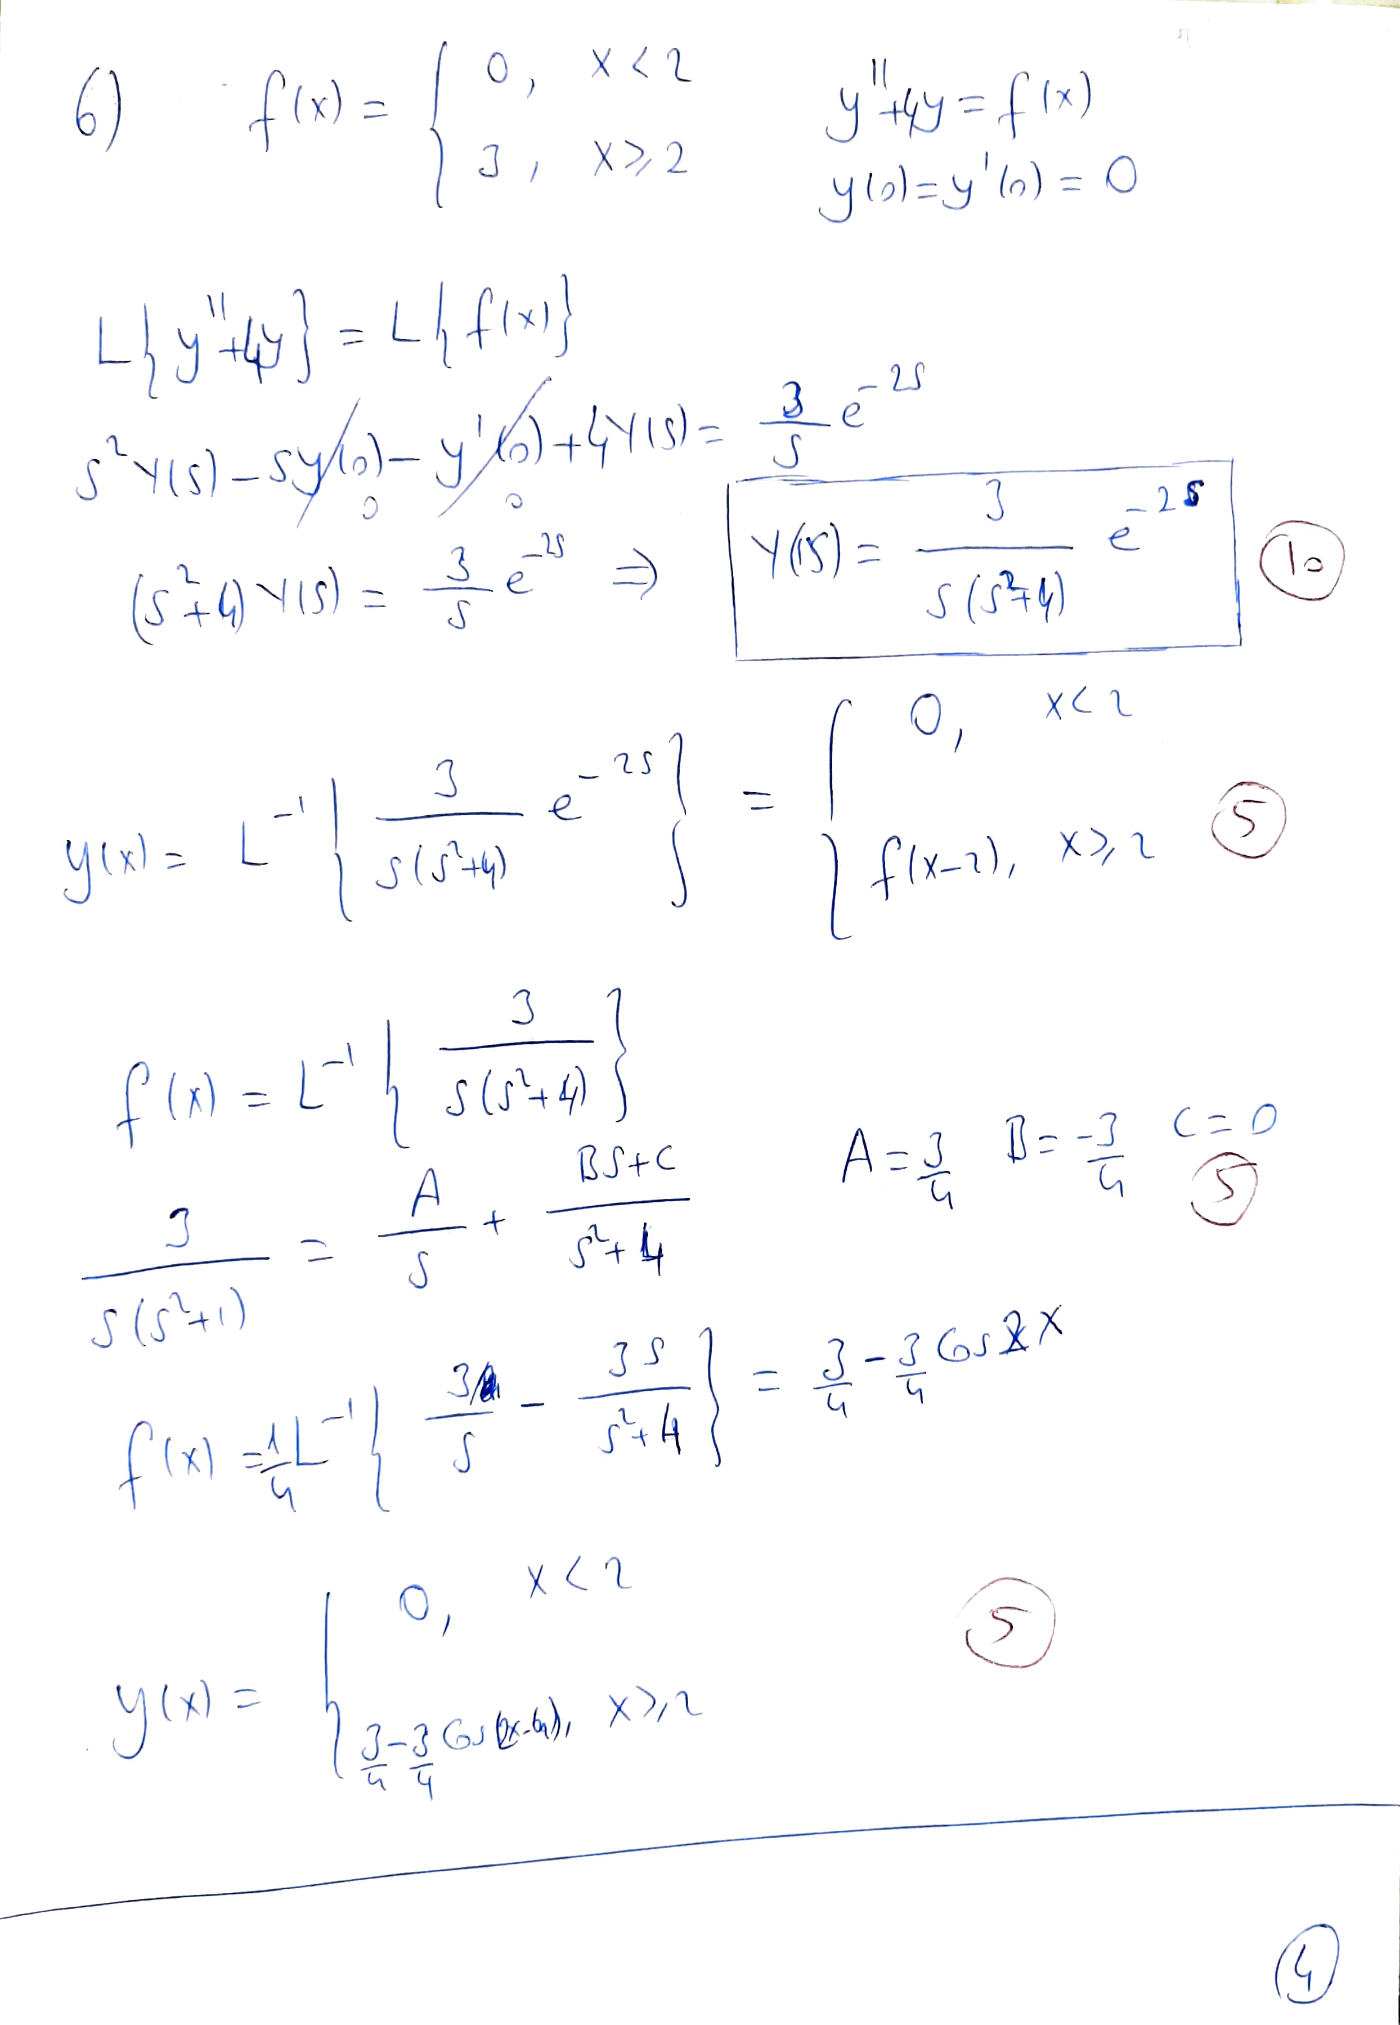 6) f(x) = { 0, x < 2 y''+4y = f(x)
3, x ≥ 2 y(0) = y'(0) = 0
L{y''+4y} = L{f(x)}
s²Y(s) − sy(0) − y'(0) + 4Y(s) = 3/s e^-2s
0 0
(s²+4) Y(s) = 3/s e^-2s ⇒ Y(s) = 3/(s(s²+4)) e^-2s (10)
y(x) = L^-1 { 3/(s(s²+4)) e^-2s } = { 0, x < 2
f(x-2), x ≥ 2 (5)
f(x) = L^-1 { 3/(s(s²+4)) }
A = 3/4 B = -3/4 C = 0
(5)
3/(s(s²+1)) = A/s + (Bs+C)/(s²+4)
f(x) = 1/4 L^-1 { 3/s − 3s/(s²+4) } = 3/4 − 3/4 Cos 2x
y(x) = { 0, x < 2 (5)
3/4 − 3/4 Cos(2x-4), x ≥ 2
(4)